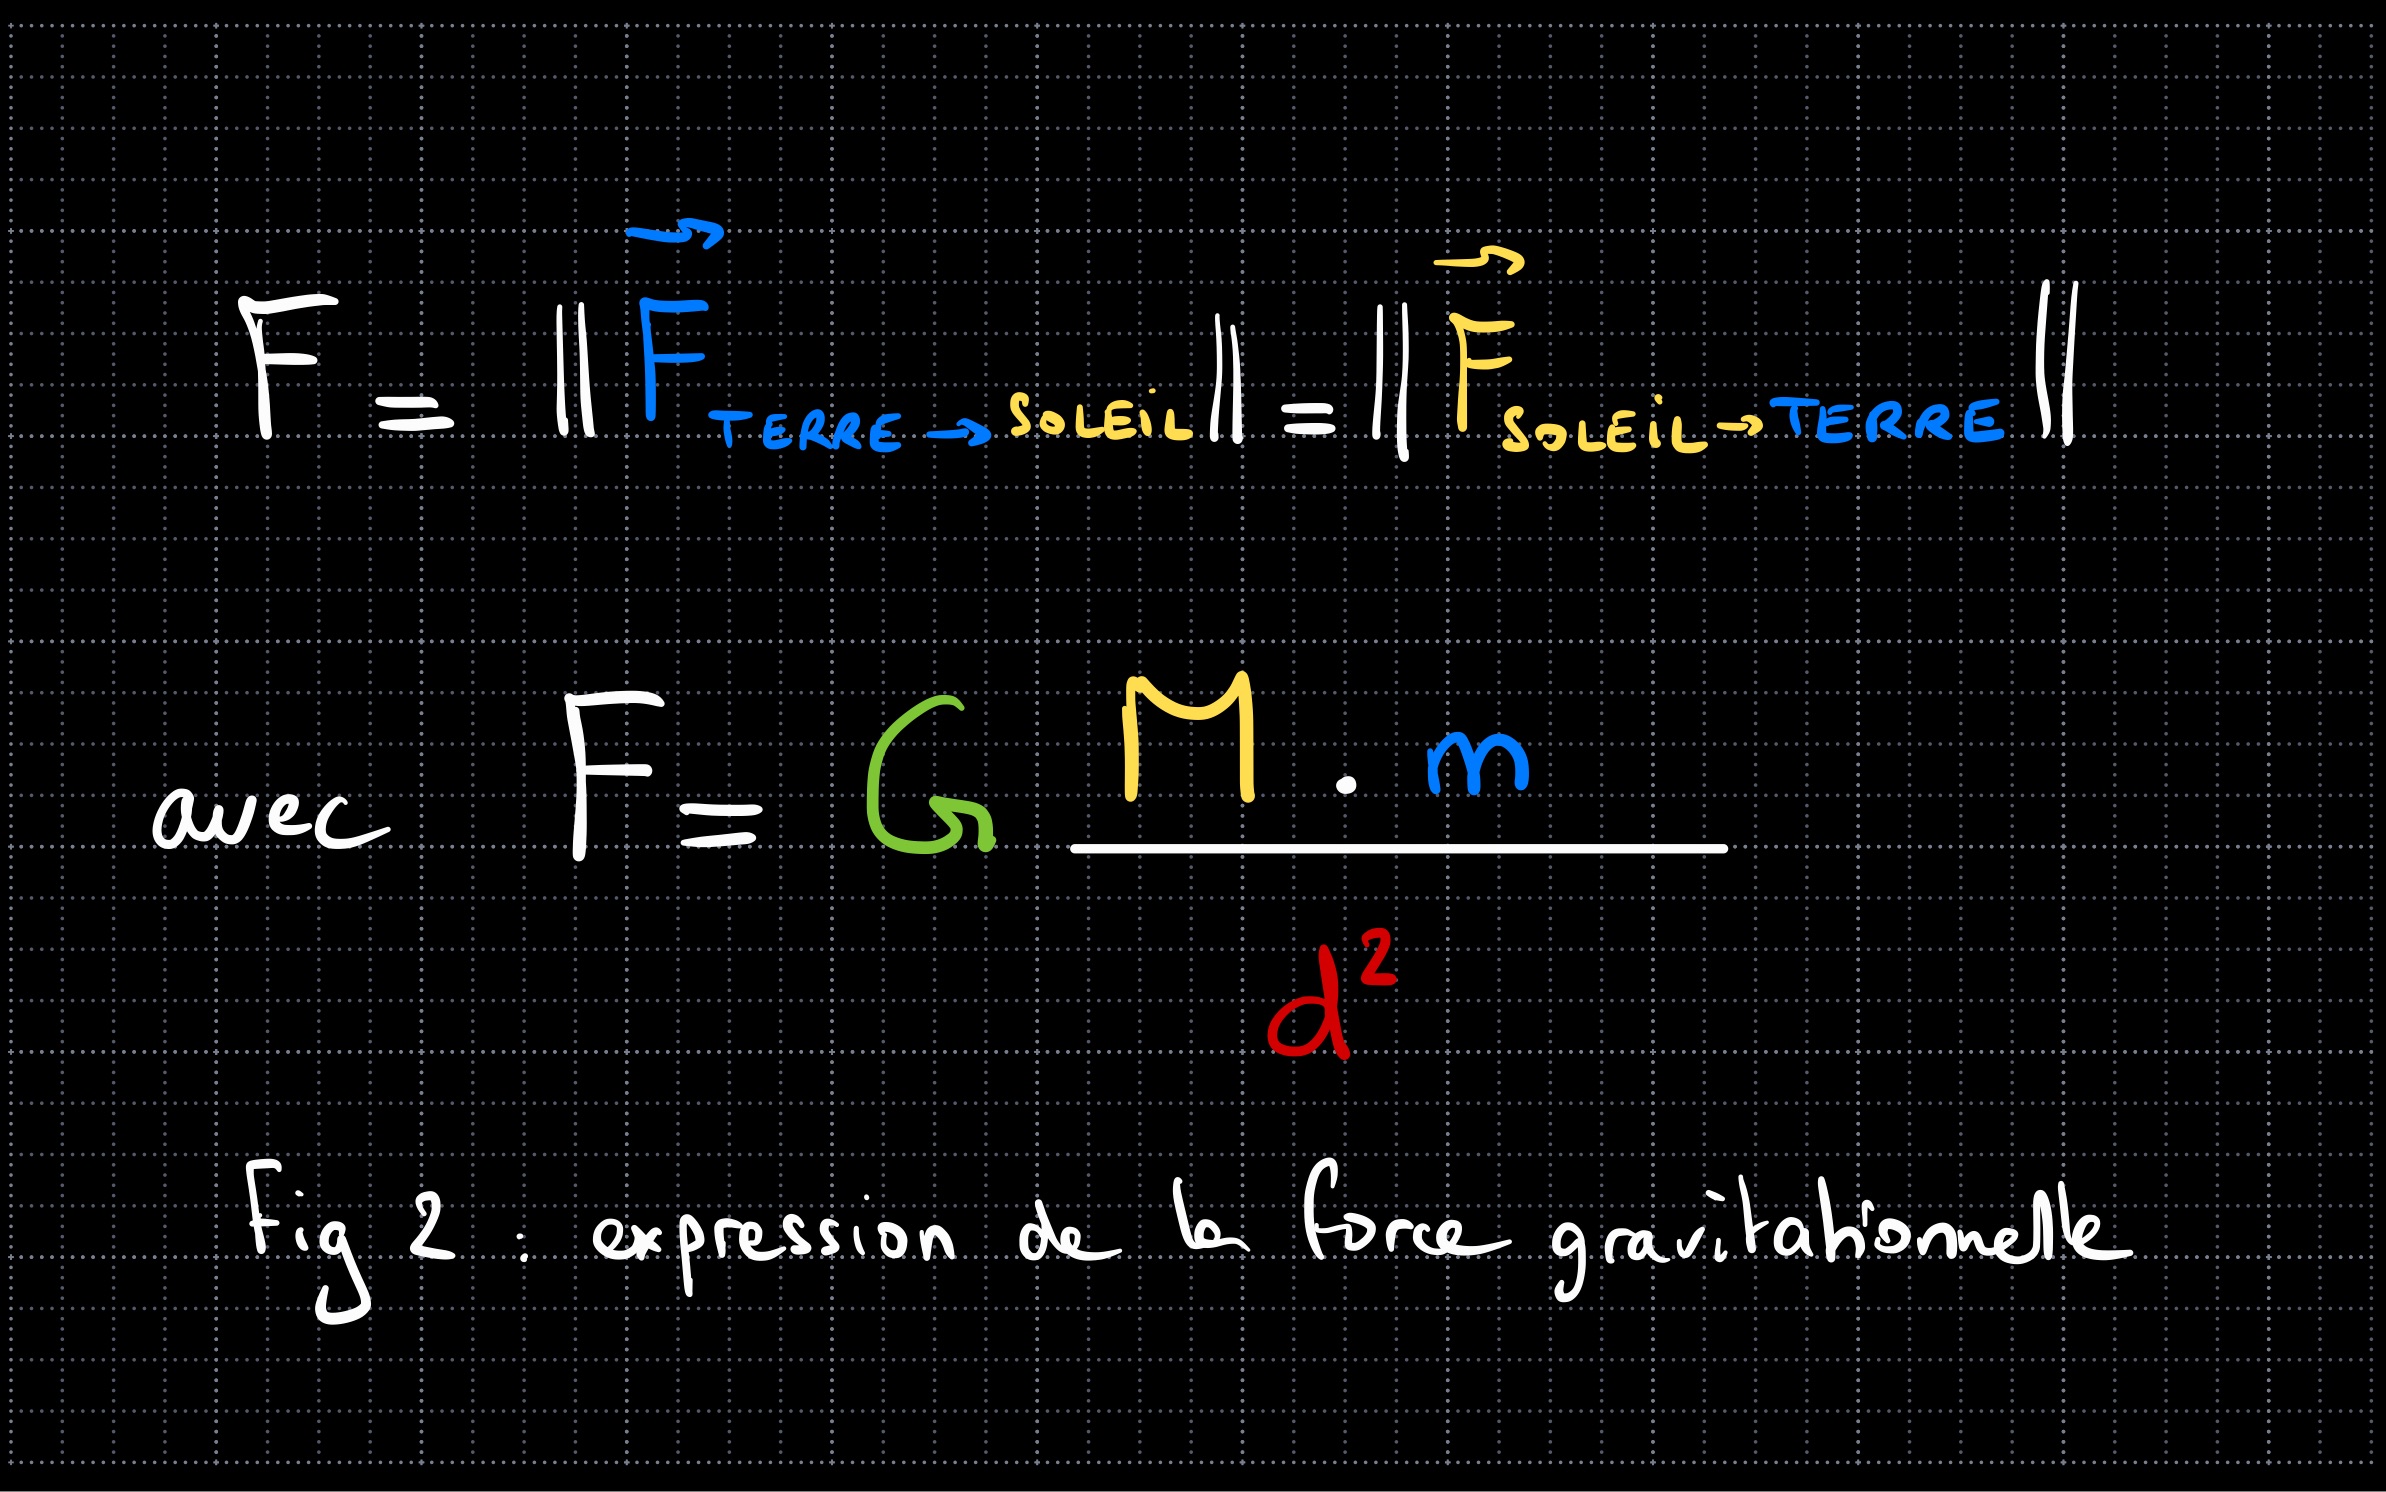 F = ||F⃗ TERRE → SOLEiL|| = ||F⃗ SOLEiL → TERRE||
avec F = G M . m / d²
Fig 2 : expression de la force gravitationnelle